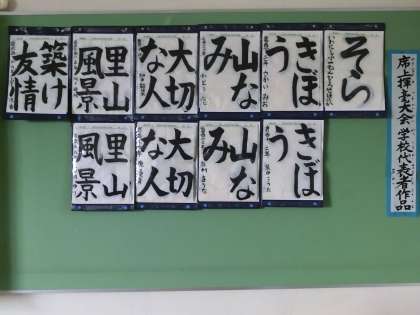 席上揮毫大会 学校代表者作品
そら
きぼ
う
山な
み
大切
な人
里山
風景
築け
友情
きぼ
う
山な
み
大切
な人
里山
風景